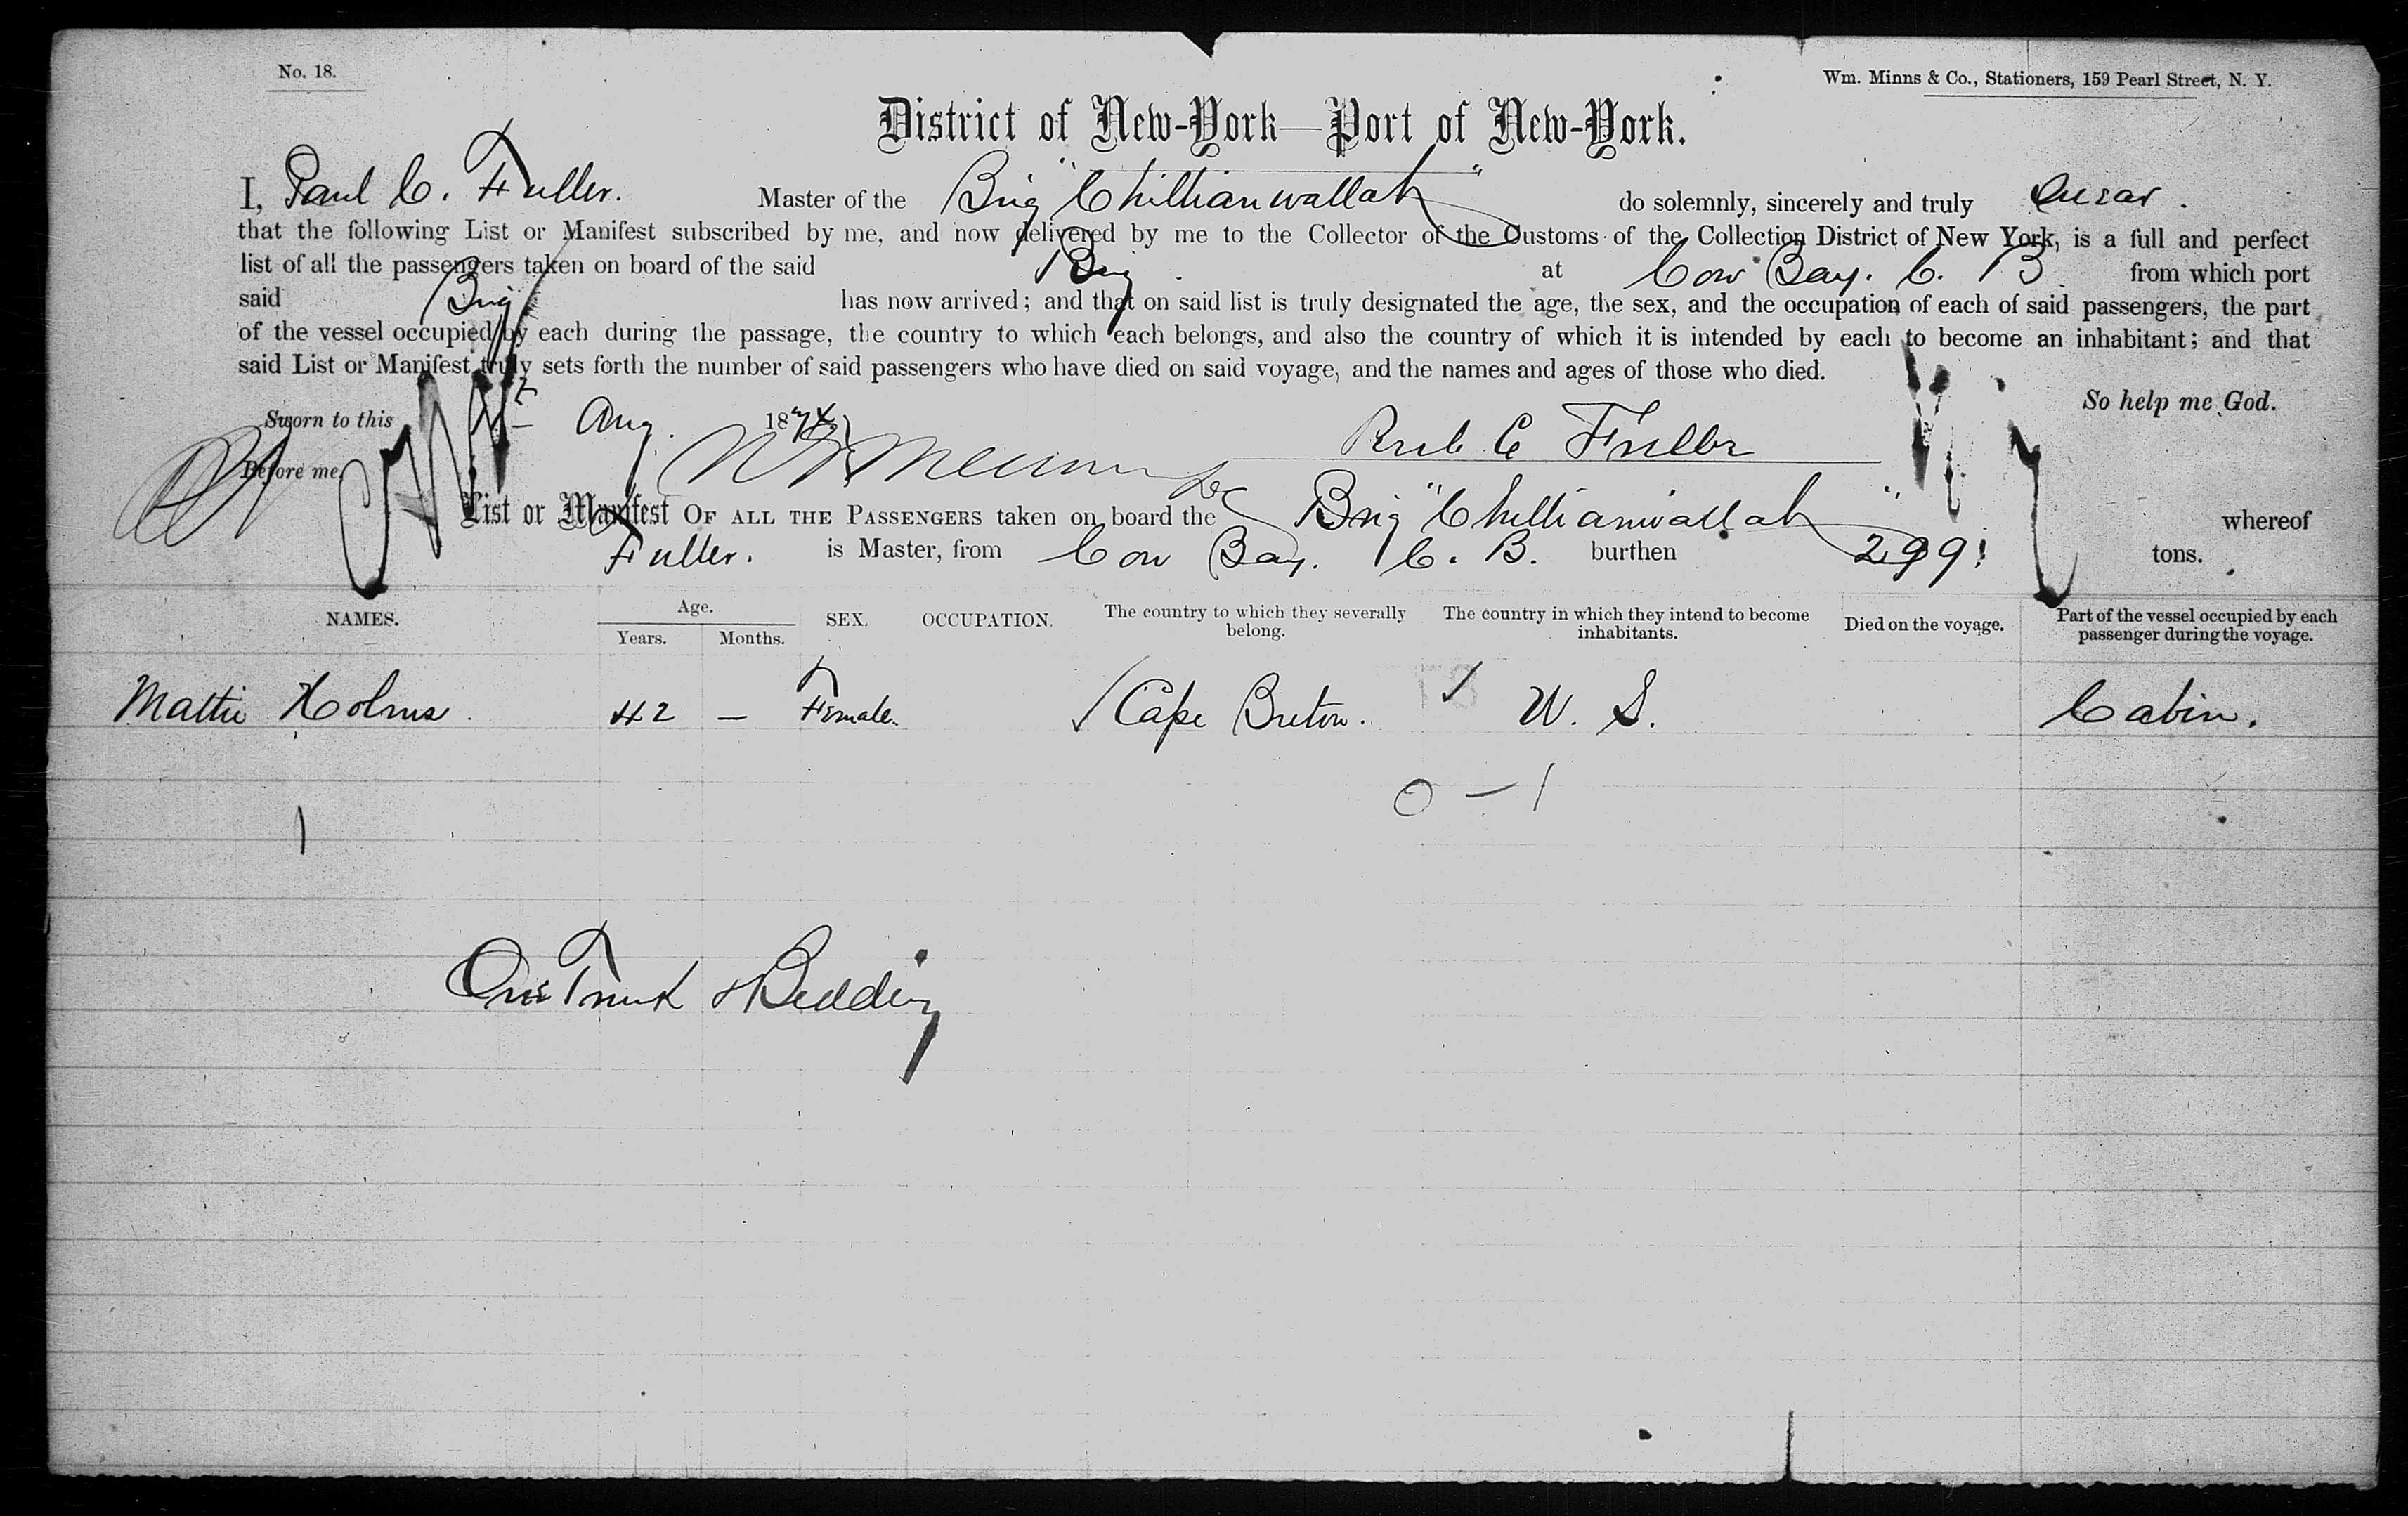 No. 18.
Wm. Minns & Co., Stationers, 159 Pearl Street, N. Y.
District of New-York—Port of New-York.
I, Paul C. Fuller. Master of the Brig "Chillianwallah" do solemnly, sincerely and truly swear.
that the following List or Manifest subscribed by me, and now delivered by me to the Collector of the Customs of the Collection District of New York, is a full and perfect
list of all the passengers taken on board of the said Brig at Cow Bay. C. B. from which port
said Brig has now arrived; and that on said list is truly designated the age, the sex, and the occupation of each of said passengers, the part
of the vessel occupied by each during the passage, the country to which each belongs, and also the country of which it is intended by each to become an inhabitant; and that
said List or Manifest truly sets forth the number of said passengers who have died on said voyage, and the names and ages of those who died.
So help me God.
Sworn to this Aug. 1874
C Fuller
Before me,
List or Manifest OF ALL THE PASSENGERS taken on board the Brig "Chillianwallah" whereof
Fuller. is Master, from Cow Bay. C. B. burthen 299 tons.
NAMES. Age. Years. Months. SEX. OCCUPATION. The country to which they severally belong. The country in which they intend to become inhabitants. Died on the voyage. Part of the vessel occupied by each passenger during the voyage.
Mattie Holms. 42 — Female. Cape Breton. U. S. Cabin.
0 — 1
1
One Trunk & Bedding